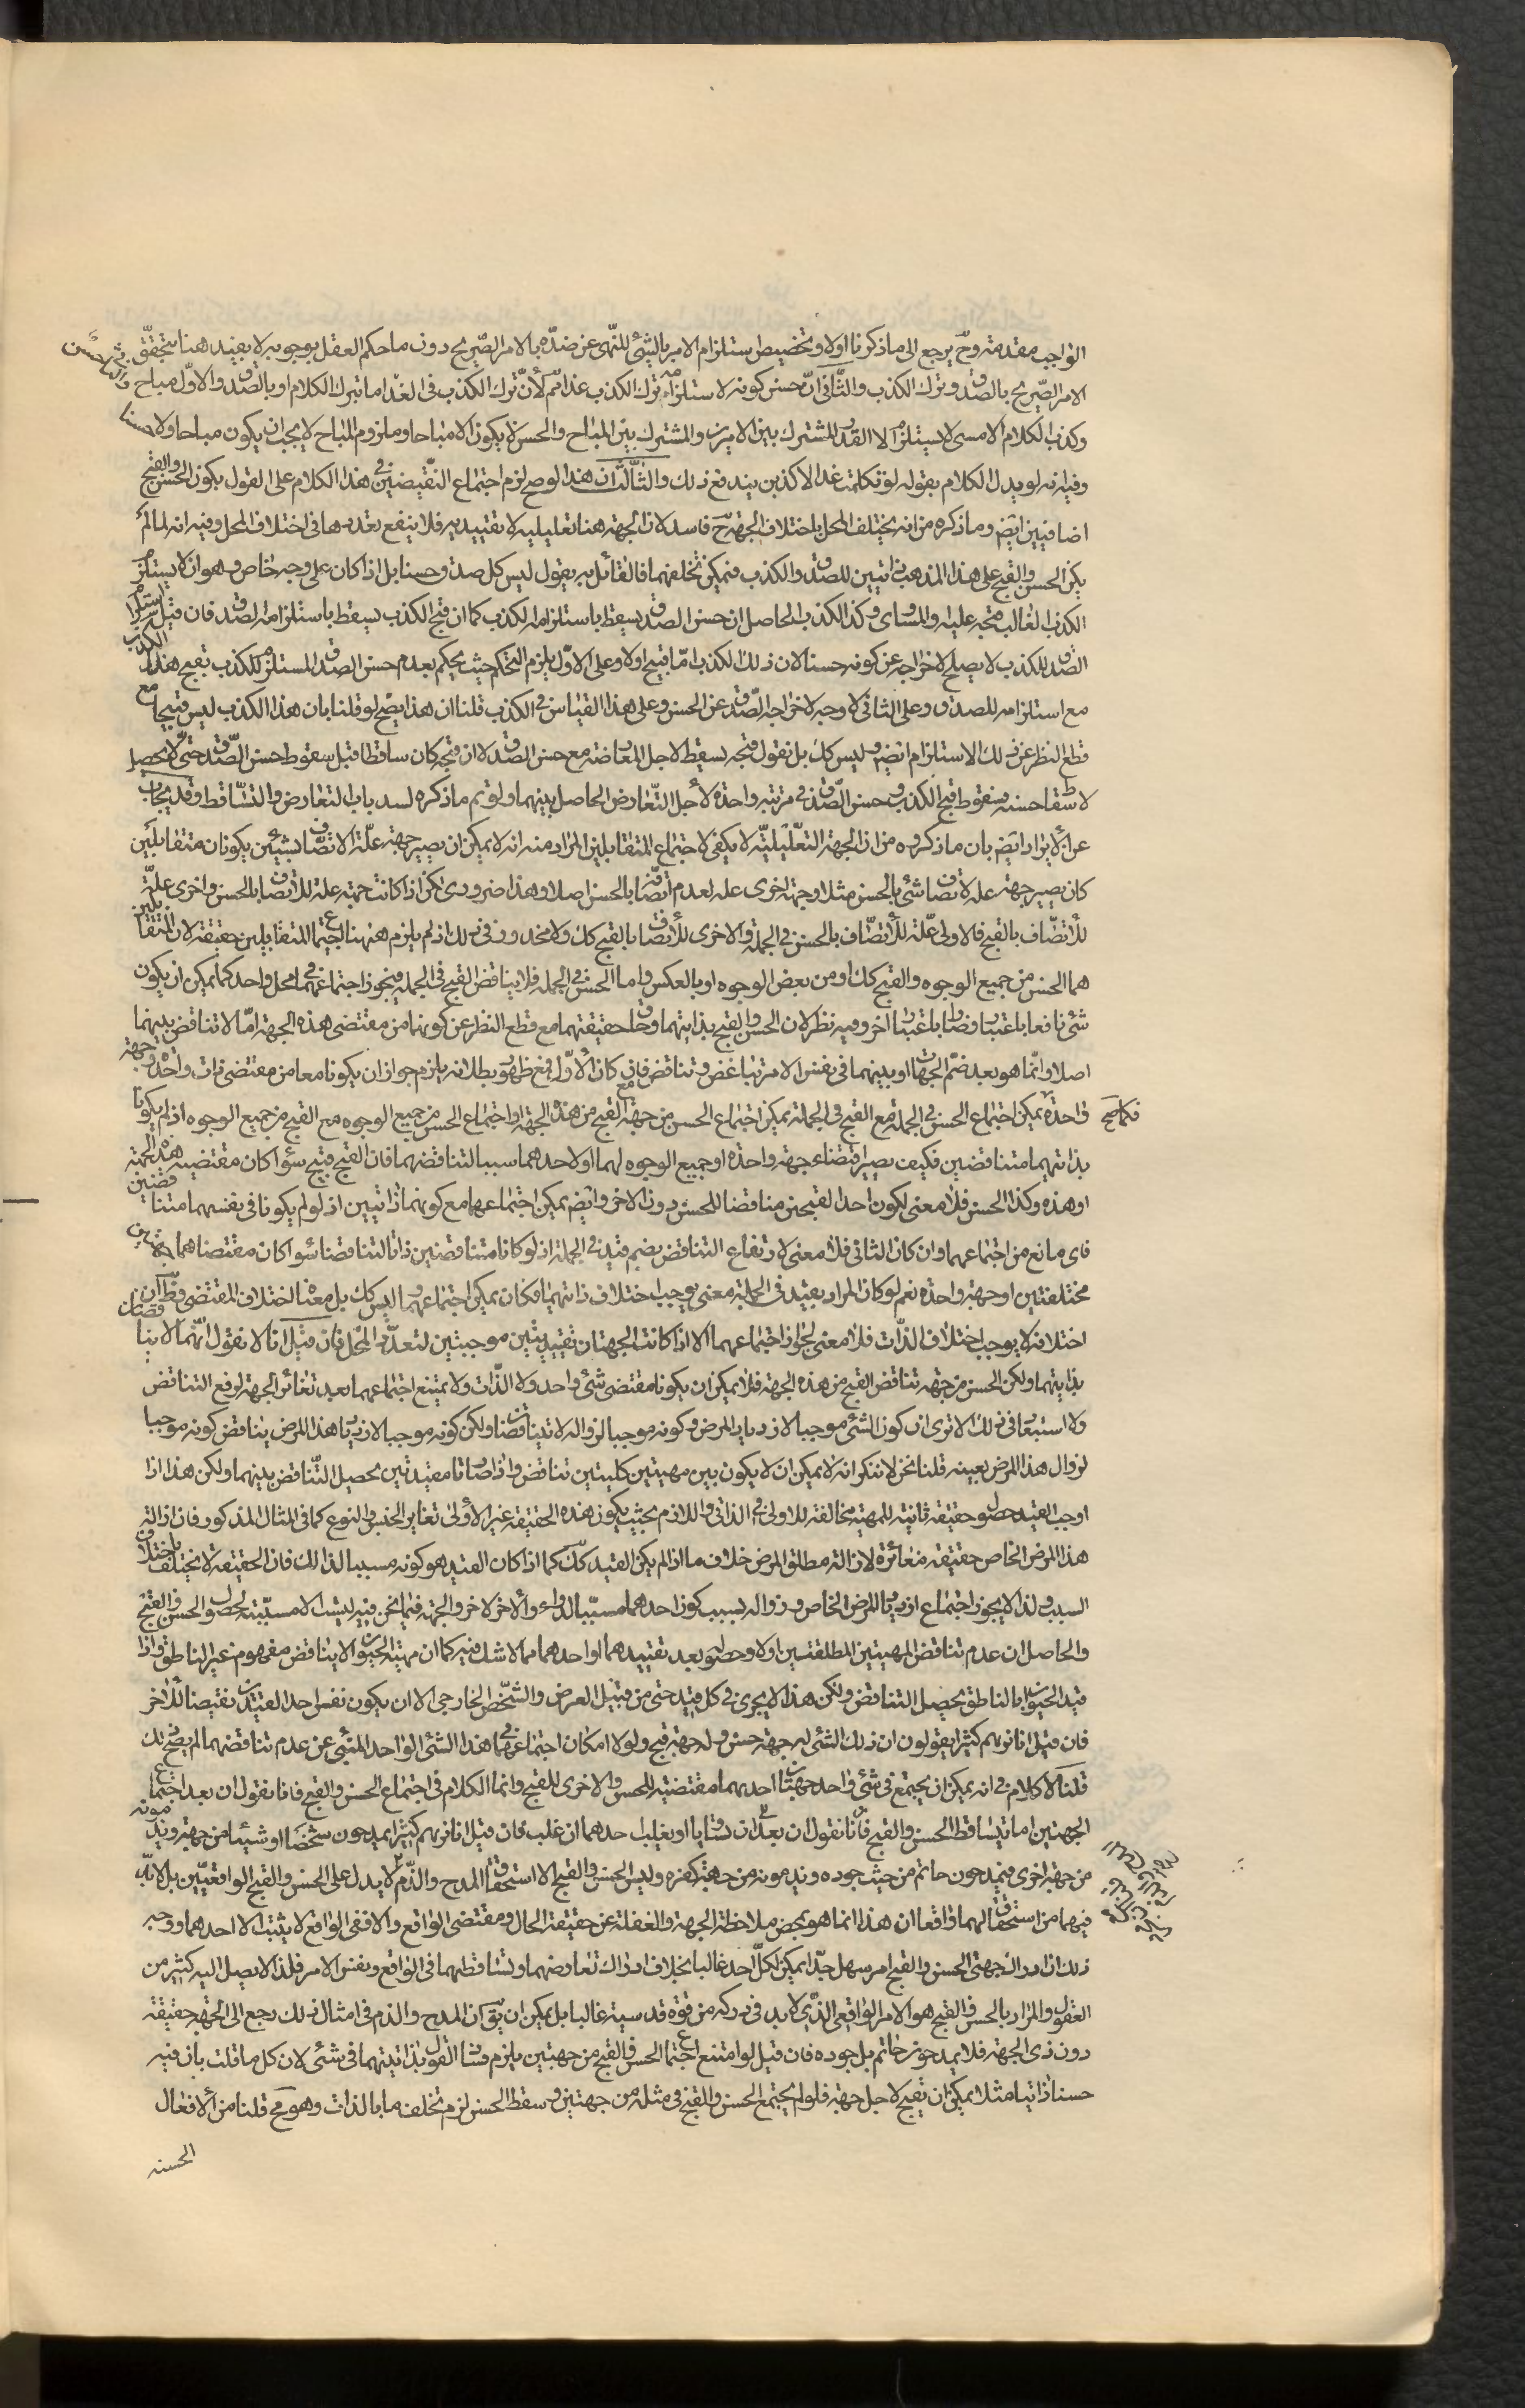 الواجب مقدمته وح يرجع الى ما ذكرنا اولا وتخصيص استلزام الامر بالشئ للنهى عن ضده بالامر الصريح دون ما حكم العقل بوجوبه لا يفيد هنا لتحقق
الامر الصريح بالصدق وترك الكذب والثانى ان حسن كونه لاستلزامه ترك الكذب غدا ثم لان ترك الكذب فى الغد اما بترك الكلام او بالصدق والاول مباح والثانى حسن
وكذب الكلام الامسى لا يستلزم الا القدر المشترك بين الامرين والمشترك بين المباح والحسن لا يكون الا مباحا وملزوم المباح لا يجب ان يكون مباحا ولا حسنا
وفيه انه لو بدل الكلام بقوله لو تكلمت غدا لاكذبن يندفع ذلك والثالث ان هذا لو صح لزم اجتماع النقيضين فى هذا الكلام على القول بكون الحسن والقبح
اضافيين ايضم وما ذكره من انه يختلف المحل باختلاف الجهة ح فاسد لان الجهة هنا تعليلية لا تقييدية فلا ينفع تعددها فى اختلاف المحل وفيه انه لما لم
يكن الحسن والقبح على هذا المذهب ذاتيين للصدق والكذب فيمكن تخلفهما فالقائل به يقول ليس كل صدق حسنا بل اذا كان على وجه خاص وهو ان لا يستلزم
الكذب الغالب قبحه عليه والمساوى وكذا الكذب والحاصل ان حسن الصدق يسقط باستلزامه الكذب كما ان قبح الكذب يسقط باستلزامه الصدق فان قيل استلزام
الصدق للكذب لا يصلح لاخراجه عن كونه حسنا لان ذلك الكذب اما قبيح او لا وعلى الاول يلزم التحكم حيث يحكم بعدم حسن الصدق المستلزم للكذب بقبح هذا الكذب
مع استلزامه للصدق وعلى الثانى لا وجه لاخراجه الصدق عن الحسن وعلى هذا القياس فى الكذب قلنا ان هذا يصح لو قلنا بان هذا الكذب ليس قبيحا مع
قطع النظر عن ذلك الاستلزام ايضم وليس كك بل نقول قبحه يسقط لاجل المعارضة مع حسن الصدق لا ان قبحه كان ساقطا قبل سقوط حسن الصدق حتى لا يحصل
لاسقاط حسنه وسقوط قبح الكذب وحسن الصدق فى مرتبة واحدة لاجل التعارض الحاصل بينهما ولو تم ما ذكره لسد باب التعارض والتساقط وقد يجاب
عن الايراد ايضم بان ما ذكروه من ان الجهة التعليلية لا يكفى لاجتماع المتقابلين المراد منه انه لا يمكن ان يصير جهة علة الاتصاف بشيئين يكونان متقابلين
كان يصير جهة علة لاتصاف شئ بالحسن مثلا وجهة اخرى علة لعدم اتصافه بالحسن اصلا وهذا ضرورى لكن اذا كانت جهة علة للاتصاف بالحسن واخرى علة
للاتصاف بالقبح فالاولى علة للاتصاف بالحسن فى الجملة والاخرى للاتصاف بالقبح كك ولا محذور فى ذلك اذ لم يلزم ههنا اجتماع المتقابلين حقيقة لان المتقابلين
هما الحسن من جميع الوجوه والقبح كك او من بعض الوجوه او بالعكس واما الحسن فى الجملة فلا يناقض القبح فى الجملة فيجوز اجتماعهما فى محل واحد كما يمكن ان يكون
شئ نافعا باعتبار وضارا باعتبار اخر وفيه نظر لان الحسن والقبح بذاتيهما وحقايق حقيقتهما مع قطع النظر عن كونهما من مقتضى هذه الجهة اما لا تناقض بينهما
اصلا وانما هو بعد ضم الجهات او بينهما فى نفس الامر تباغض وتناقض فان كان الاول فمع ظهور بطلانه يلزم جواز ان يكونا معا من مقتضى ذات واحدة وجهة
واحدة فكما صح يمكن اجتماع الحسن فى الجملة مع القبح فى الجملة يمكن اجتماع الحسن من جهة مع القبح من هذه الجهة او اجتماع الحسن من جميع الوجوه مع القبح من جميع الوجوه اذا لم يكونا
بذاتيهما متناقضين فكيف يصير اقتضاء جهة واحدة او جميع الوجوه لهما او لاحدهما سببا لتناقضهما فان القبح قبيح سواء كان مقتضيه هذه الجهة
او هذه وكذا الحسن فلا معنى لكون احد القبحين مناقضا للحسن دون الاخر وايضم يمكن اجتماعهما مع كونهما ذاتيين اذ لو لم يكونا فى نفسهما متناقضين
فاى مانع من اجتماعهما وان كان الثانى فلا معنى لارتفاع التناقض بضم قيد فى الجملة اذ لو كانا متناقضين ذاتا لتناقضا سواء كان مقتضاهما جهتين
مختلفتين او جهة واحدة نعم لو كان المراد بقيد فى الجملة معنى يوجب اختلاف ذاتيهما فكان يمكن اجتماعهما وليس كك بل معناه اختلاف المقتضى وظ ان
اختلافه لا يوجب اختلاف الذات فلا معنى لجواز اجتماعهما الا اذا كانت الجهتان تقييديتين موجبتين لتعدد المحل فان قيل انا لا نقول انهما لا يتناقضان
بذاتيهما ولكن الحسن من جهة تناقض القبح من هذه الجهة فلا يمكن ان يكونا مقتضى شئ واحد ولا الذات ولا يمتنع اجتماعهما بعد تغاير الجهة لرفع التناقض
ولا استبعاد فى ذلك الا ترى ان كون الشئ موجبا لازدياد المرض وكونه موجبا لزواله لا يتناقضان ولكن كونه موجبا لازدياد هذا المرض يناقض كونه موجبا
لزوال هذا المرض بعينه قلنا نحن لا ننكر انه لا يمكن ان لا يكون بين مهيتين كليتين تناقض واذا صارتا مقيدتين يحصل التناقض بينهما ولكن هذا اذا
اوجب القيد حصول حقيقة ثانية للمهية مخالفة للاولى فى الذاتى واللازم بحيث يكون هذه الحقيقة غير الاولى تغاير الجنس والنوع كما فى المثال المذكور فان ازالة
هذا المرض الخاص حقيقة مغائرة لازالة مطلق المرض خلاف ما اذا لم يكن القيد كك كما اذا كان القيد هو كونه مسببا لذلك فان الحقيقة لا يختلف باختلاف
السبب ولذا لا يجوز اجتماع ازدياد المرض الخاص وزواله بسبب كون احدهما مسببا لدواء والاخر لاخر والجهة فيما نحن فيه ليست الا مسببة لحصول الحسن والقبح
والحاصل ان عدم تناقض المهيتين المطلقتين اولا وحصوله بعد تقييدهما او احدهما مما لا شك فيه كما ان مهية الحيوان لا يناقض مفهوم غير الناطق واذا
قيد الحيوان بالناطق يحصل التناقض ولكن هذا لا يجرى فى كل قيد حتى من قبيل العرض والشخص الخارجى الا ان يكون نفس احد القيدين نقيضا للاخر
فان قيل انا نريهم كثيرا يقولون ان ذلك الشئ له جهة حسن وله جهة قبح ولولا امكان اجتماعهما فى هذا الشئ الواحد المنبئ عن عدم تناقضهما لم يصح ذلك
قلنا لا كلام فى انه يمكن ان يجتمع فى شئ واحد جهتان احدهما مقتضية للحسن والاخرى للقبح وانما الكلام فى اجتماع الحسن والقبح فانا نقول ان بعد اجتماع
الجهتين اما يتساقط الحسن والقبح فانا نقول ان بعد ان تساويا او يغلب احدهما ان غلب فان قيل انا نريهم كثيرا يمدحون شخصا او شيئا من جهة ويذمونه
من جهة اخرى فيمدحون حاتم من حيث جوده ويذمونه من جهة كفره وليس الحسن والقبح الا استحقاق المدح والذم لا يدل على الحسن والقبح الواقعيين بل لابد
فيهما من استحقاق لهما واقعا ان هذا انما هو بمحض ملاحظة الجهة والغفلة عن حقيقة الحال ومقتضى الواقع والا ففى الواقع لا يثبت الا احدهما ووجه
ذلك ان ادراك جهتى الحسن والقبح امر سهل جدا يمكن لكل احد غالبا بخلاف ادراك تعارضهما وتساقطهما فى الواقع ونفس الامر فلذا لا يصل اليه كثير من
العقول والمراد بالحسن والقبح هو الامر الواقعى الذى لابد فى دركه من قوة قدسية غالبا بل يمكن ان يق ان المدح والذم فى امثال ذلك رجع الى الجهة حقيقة
دون ذى الجهة فلا يمدحون حاتم بل جوده فان قيل لو امتنع اجتماع الحسن والقبح من جهتين يلزم فساد القول بذاتيتهما فى شئ لان كل ما قلت بان فيه
حسنا ذاتيا مثلا يمكن ان يقبح لاجل جهة فلو لم يجتمع الحسن والقبح فى مثله من جهتين وسقط الحسن لزم تخلف ما بالذات وهو مح قلنا من الافعال
الحسنه